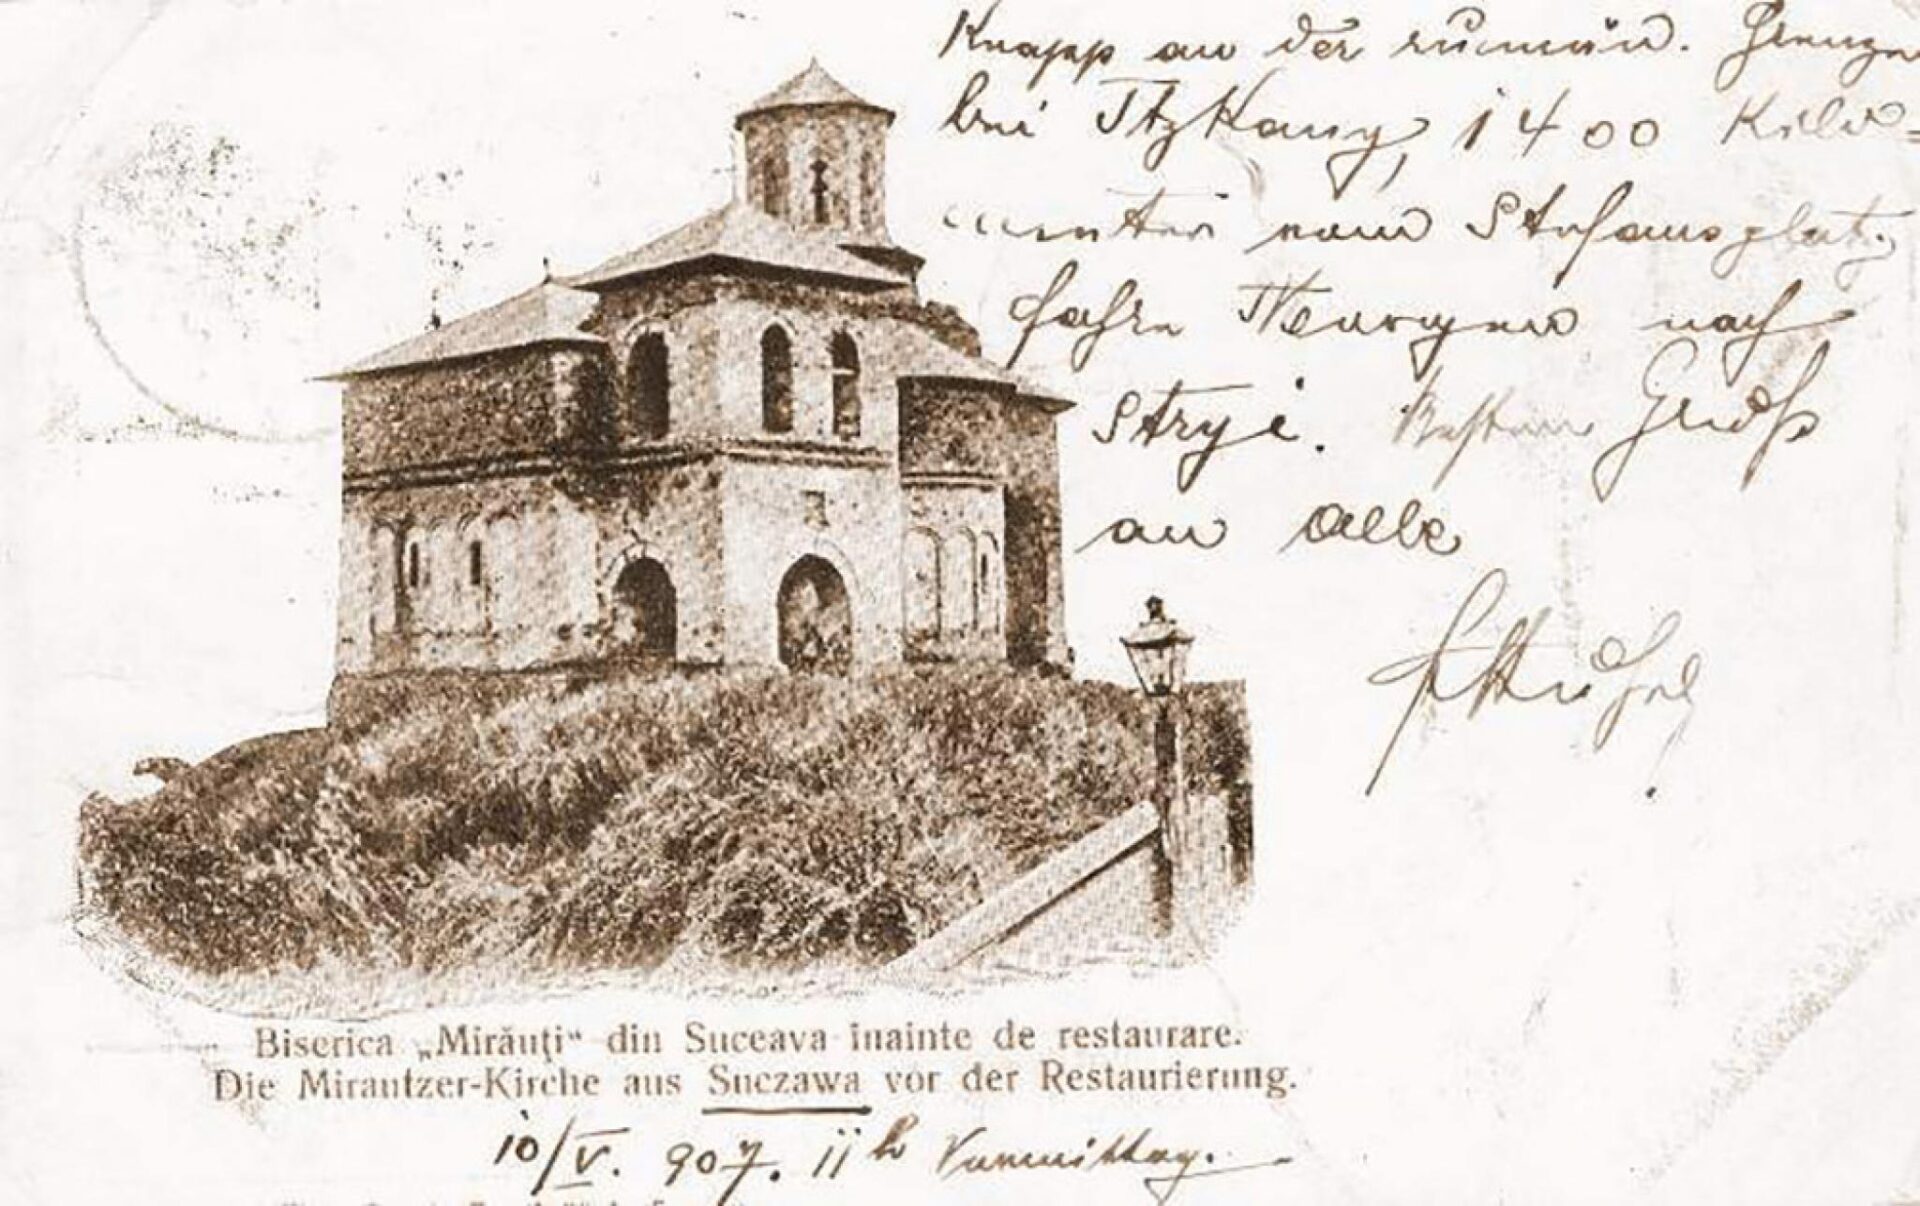 Knapp an der rumän. Grenze
bei Itzkany, 1400 Kilo=
meter vom Stefansplatz,
fahre Morgen nach
Stryi. Besten Gruß
an alle
Biserica „Mirăuţi“ din Suceava înainte de restaurare.
Die Mirautzer-Kirche aus Suczawa vor der Restaurierung.
10/V. 907. 11h Vormittag.